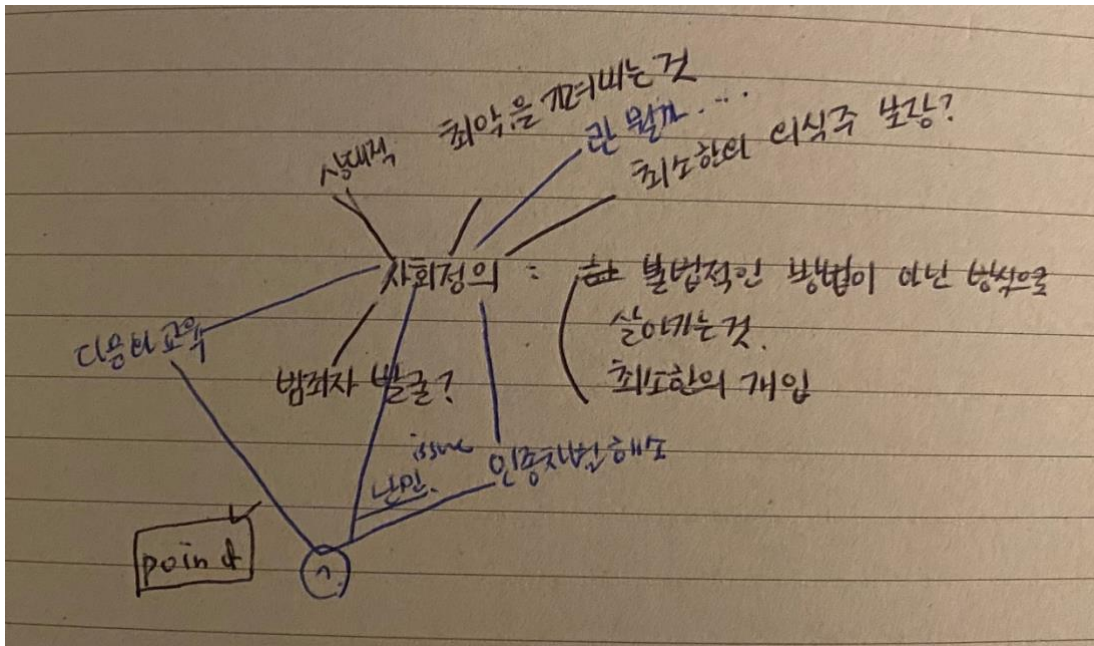 최악을 면하는 것
상대적
란 뭘까....
최소한의 의식주 보장?
사회정의 : 불법적인 방법이 아닌 방식으로
살아가는 것.
최소한의 개입
다음타 교육
범죄자 발굴?
issue
난민.
인종차별 해소
point
?